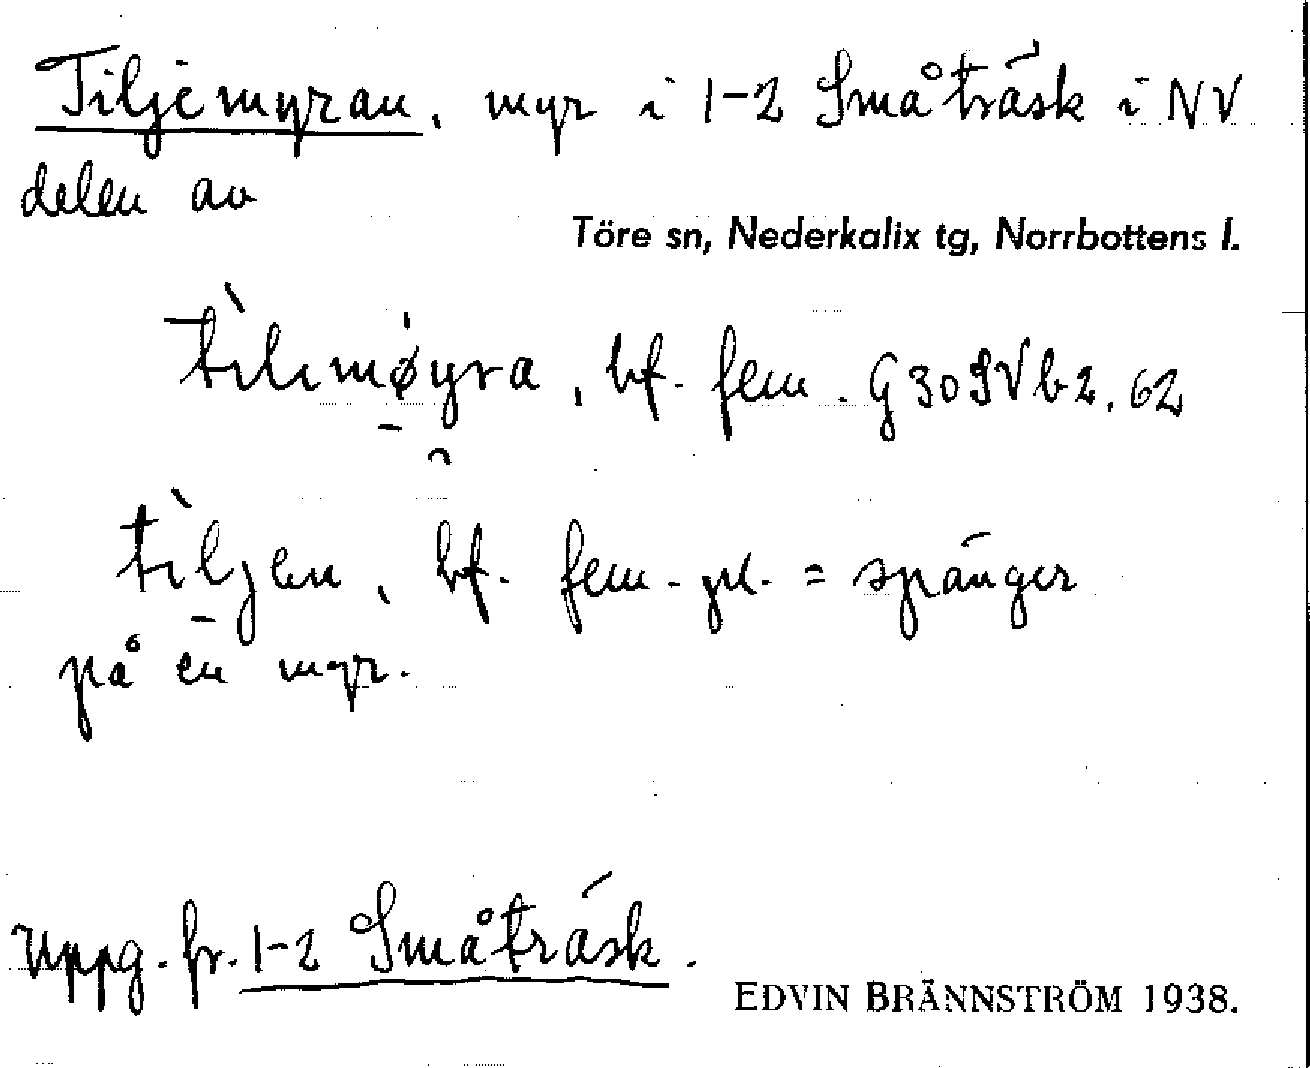 Tiljemyran, myr i 1-2 Småträsk i NV
delen av
Töre sn, Nederkalix tg, Norrbottens l.
tìlımøyra, bf. fem. G30SVb2,62
tìljen, bf. fem. pl. = spänger
på en myr.
Uppg. fr. 1-2 Småträsk.
EDVIN BRÄNNSTRÖM 1938.